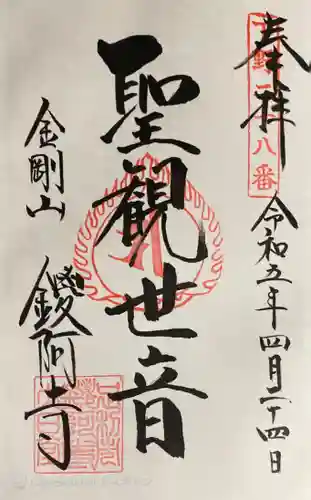 奉拝
八番
令和五年四月二十四日
聖観世音
金剛山
鑁阿寺